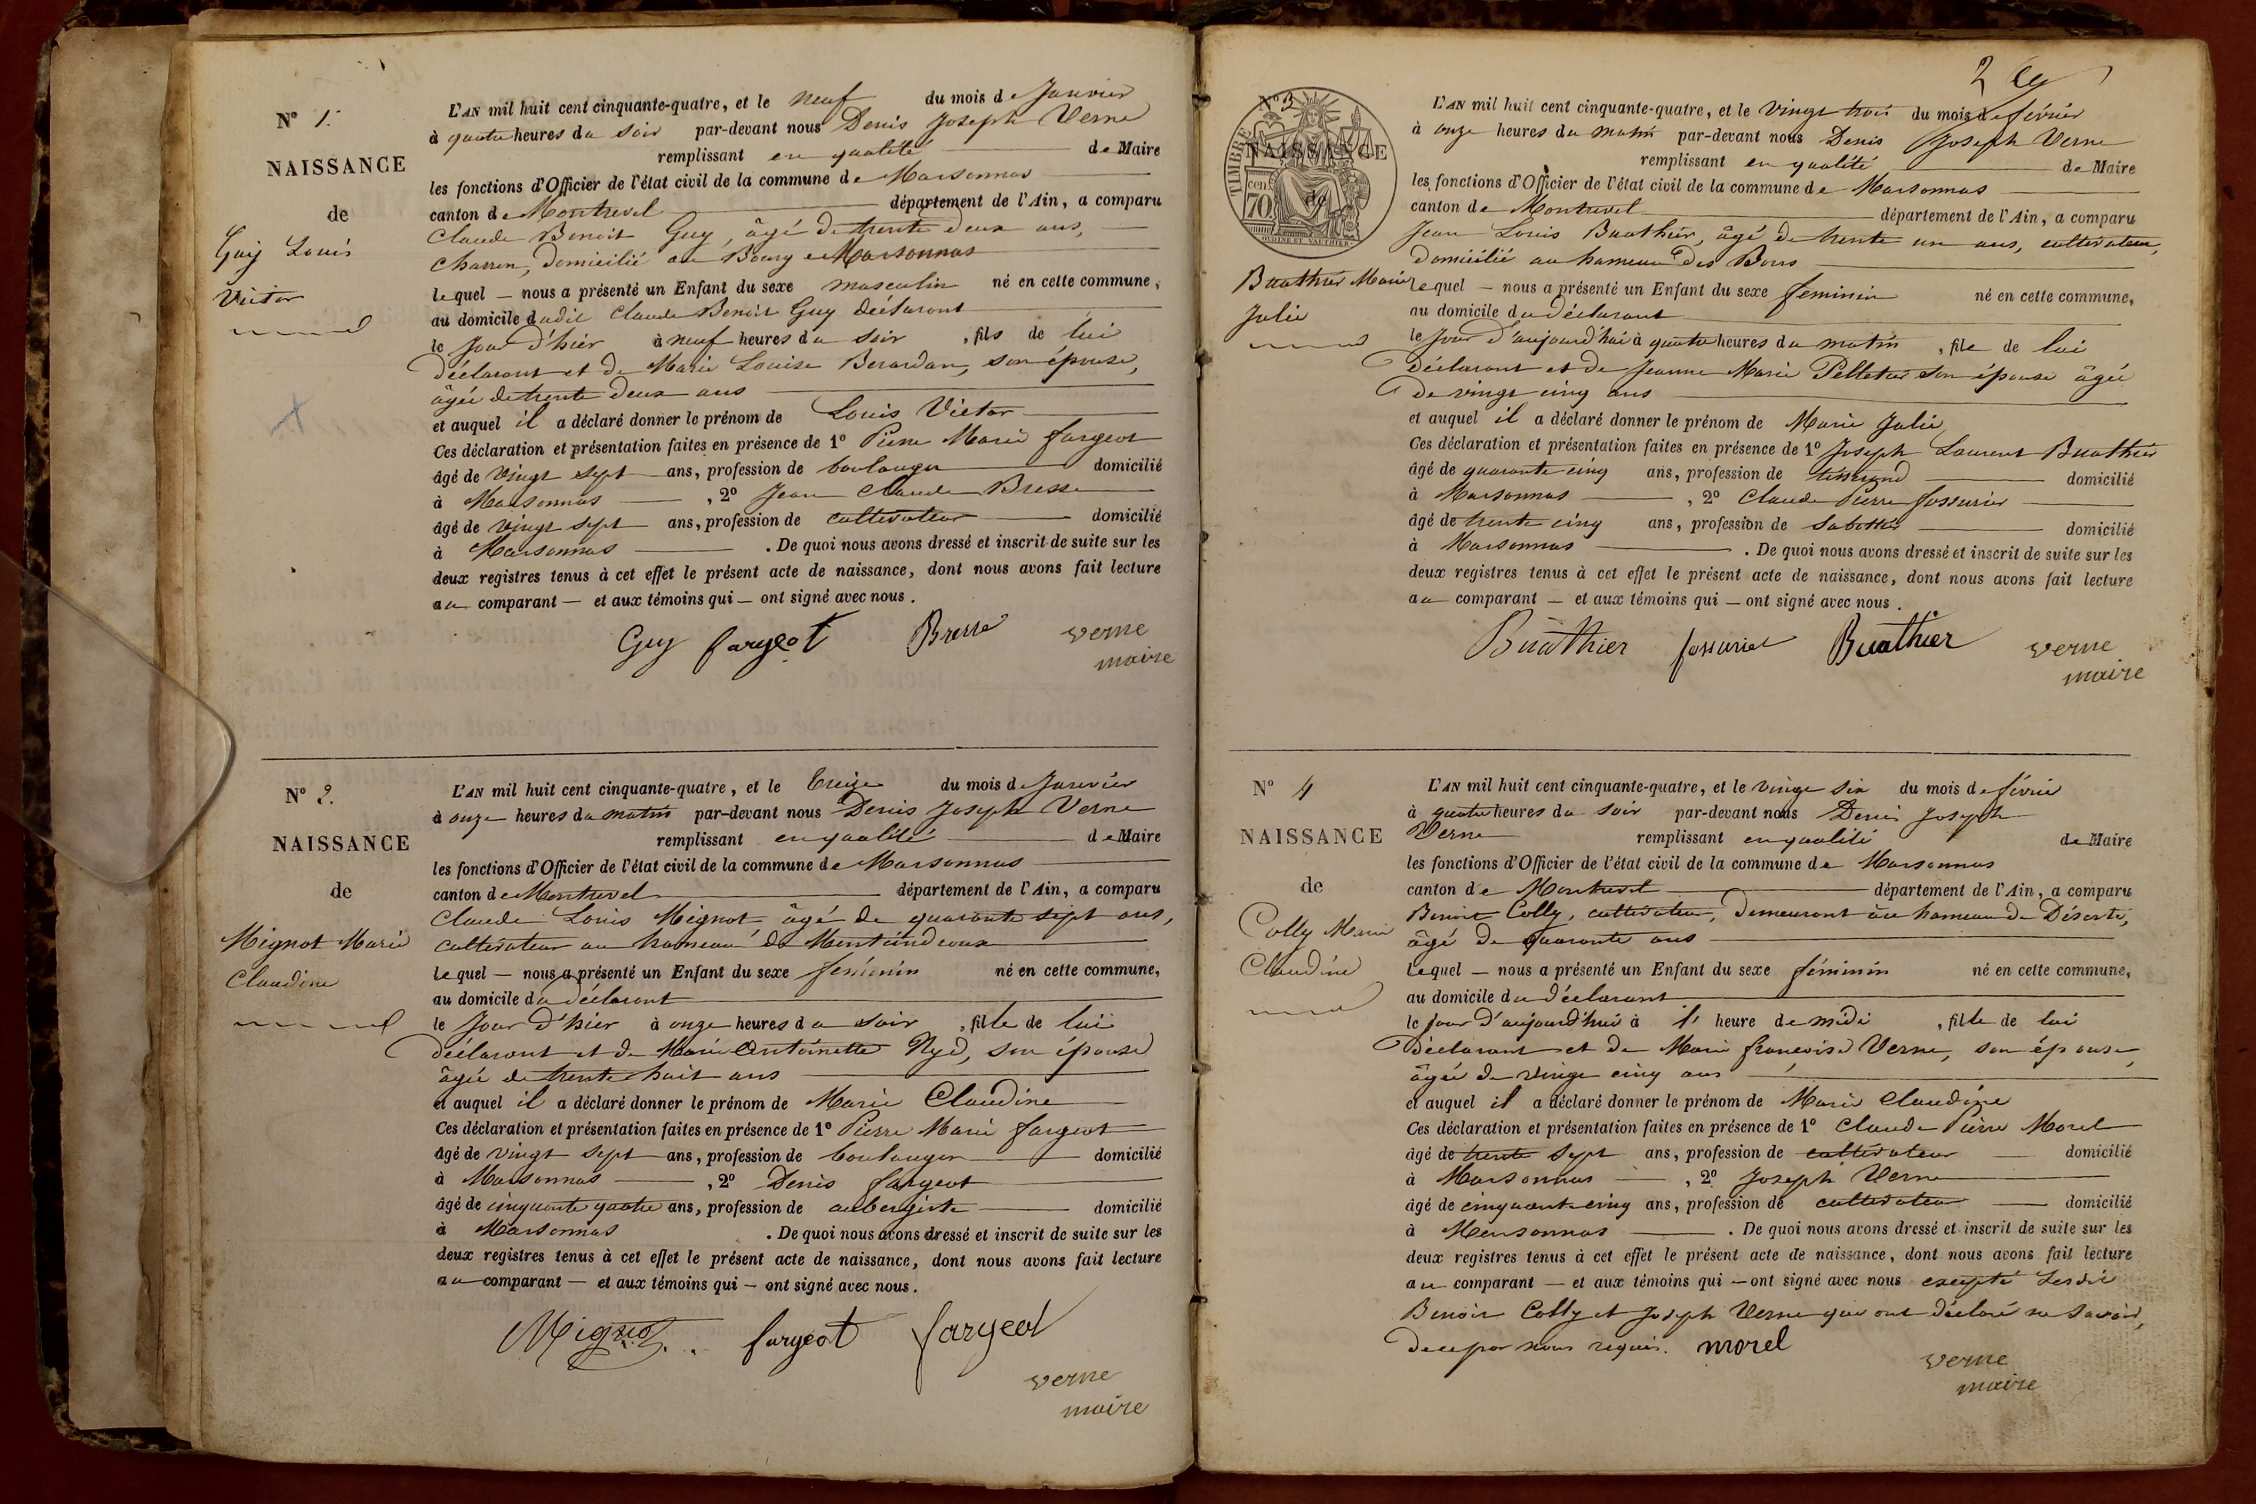 Nº 1.
NAISSANCE
de
Guy Louis
Victor
L'AN mil huit cent cinquante-quatre, et le neuf du mois de Janvier
à quatre heures du soir par-devant nous Denis Joseph Verne
remplissant en qualité de Maire
les fonctions d'Officier de l'état civil de la commune de Marsonnas
canton de Montrevel département de l'Ain, a comparu
Claude Benoit Guy, âgé de trente deux ans,
charron, domicilié au Bourg de Marsonnas
lequel — nous a présenté un Enfant du sexe masculin né en cette commune,
au domicile dudit Claude Benoit Guy déclarant
le jour d'hier à neuf heures du soir, fils de lui
déclarant et de Marie Louise Berardan, son épouse,
âgée de trente deux ans
et auquel il a déclaré donner le prénom de Louis Victor
Ces déclaration et présentation faites en présence de 1º Pierre Marie fargeot
âgé de vingt sept ans, profession de boulanger domicilié
à Marsonnas, 2º Jean Claude Bresse
âgé de vingt sept ans, profession de cultivateur domicilié
à Marsonnas. De quoi nous avons dressé et inscrit de suite sur les
deux registres tenus à cet effet le présent acte de naissance, dont nous avons fait lecture
au comparant — et aux témoins qui — ont signé avec nous.
Guy fargeot Bresse verne
maire
Nº 2.
NAISSANCE
de
Mignot Marie
Claudine
L'AN mil huit cent cinquante-quatre, et le treize du mois de Janvier
à onze heures du matin par-devant nous Denis Joseph Verne
remplissant en qualité de Maire
les fonctions d'Officier de l'état civil de la commune de Marsonnas
canton de Montrevel département de l'Ain, a comparu
Claude Louis Mignot, âgé de quarante sept ans,
cultivateur au hameau de
lequel — nous a présenté un Enfant du sexe féminin né en cette commune,
au domicile du déclarant
le jour d'hier à onze heures du soir, fille de lui
déclarant et de Marie Antoinette Nyd, son épouse
âgée de trente huit ans
et auquel il a déclaré donner le prénom de Marie Claudine
Ces déclaration et présentation faites en présence de 1º Pierre Marie fargeot
âgé de vingt sept ans, profession de boulanger domicilié
à Marsonnas, 2º Denis fargeot
âgé de cinquante quatre ans, profession de aubergiste domicilié
à Marsonnas. De quoi nous avons dressé et inscrit de suite sur les
deux registres tenus à cet effet le présent acte de naissance, dont nous avons fait lecture
au comparant — et aux témoins qui — ont signé avec nous.
Mignot fargeot fargeot
verne
maire
2
Nº 3
NAISSANCE
de
TIMBRE
cent.
70
Buathier Marie
Julie
L'AN mil huit cent cinquante-quatre, et le vingt trois du mois de février
à onze heures du matin par-devant nous Denis Joseph Verne
remplissant en qualité de Maire
les fonctions d'Officier de l'état civil de la commune de Marsonnas
canton de Montrevel département de l'Ain, a comparu
Jean Louis Buathier, âgé de trente un ans, cultivateur,
domicilié au hameau des Bois
lequel — nous a présenté un Enfant du sexe féminin né en cette commune,
au domicile du déclarant
le jour d'aujourd'hui à quatre heures du matin, fille de lui
déclarant et de Jeanne Marie Pelletier son épouse âgée
de vingt cinq ans
et auquel il a déclaré donner le prénom de Marie Julie
Ces déclaration et présentation faites en présence de 1º Joseph Laurent Buathier
âgé de quarante cinq ans, profession de tisserand domicilié
à Marsonnas, 2º Claude Pierre fossurier
âgé de trente cinq ans, profession de sabottier domicilié
à Marsonnas. De quoi nous avons dressé et inscrit de suite sur les
deux registres tenus à cet effet le présent acte de naissance, dont nous avons fait lecture
au comparant — et aux témoins qui — ont signé avec nous.
Buathier fossurier Buathier verne
maire
Nº 4
NAISSANCE
de
Colly Marie
Claudine
L'AN mil huit cent cinquante-quatre, et le vingt six du mois de février
à quatre heures du soir par-devant nous Denis Joseph
Verne remplissant en qualité de Maire
les fonctions d'Officier de l'état civil de la commune de Marsonnas
canton de Montrevel département de l'Ain, a comparu
Benoit Colly, cultivateur, demeurant au hameau de Déserte,
âgé de quarante ans
lequel — nous a présenté un Enfant du sexe féminin né en cette commune,
au domicile du déclarant
le jour d'aujourd'hui à 1' heure de midi, fille de lui
déclarant et de Marie françoise Verne, son épouse,
âgée de vingt cinq ans
et auquel il a déclaré donner le prénom de Marie Claudine
Ces déclaration et présentation faites en présence de 1º Claude Pierre Morel
âgé de trente sept ans, profession de cultivateur domicilié
à Marsonnas, 2º Joseph Verne
âgé de cinquante cinq ans, profession de cultivateur domicilié
à Marsonnas. De quoi nous avons dressé et inscrit de suite sur les
deux registres tenus à cet effet le présent acte de naissance, dont nous avons fait lecture
au comparant — et aux témoins qui — ont signé avec nous excepté lesdit
Benoit Colly et Joseph Verne qui ont déclaré ne savoir,
de ce par nous requis. morel
verne
maire